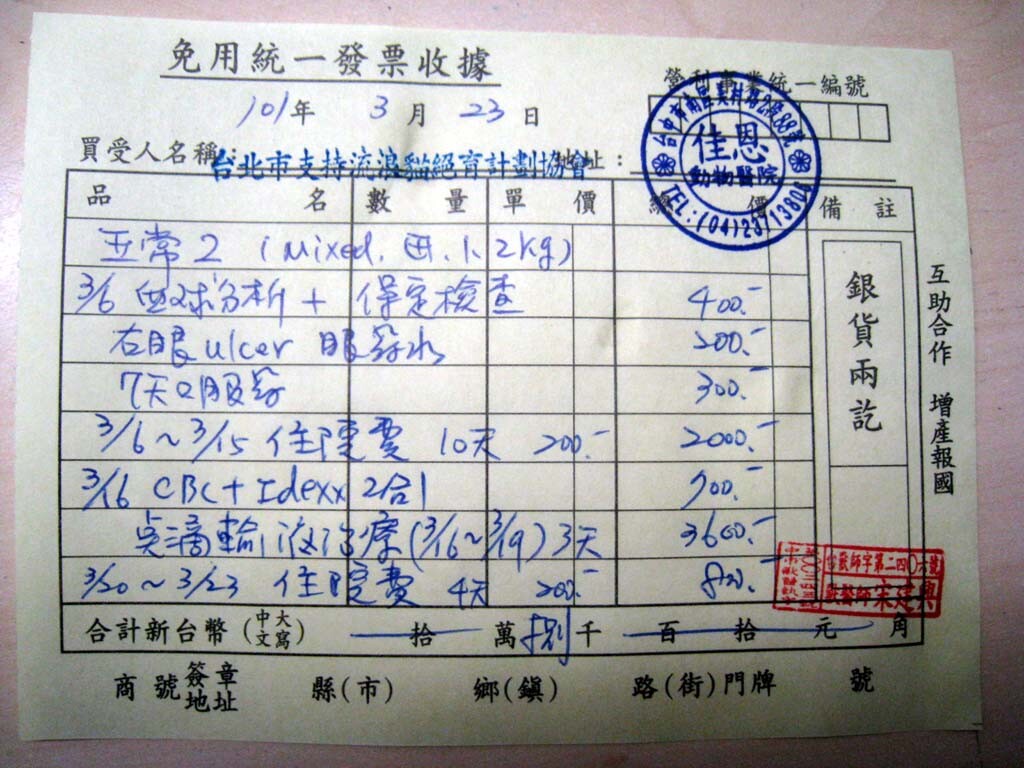 免用統一發票收據
營利事業統一編號
101年 3月 23日
買受人名稱：台北市支持流浪貓絕育計劃協會 地址：
台中市南區美村路2段88號
佳恩
動物醫院
TEL:(04)23713808
品名 數量 單價 總價 備註
(Mixed, 1.2kg)
3/6 分析 + 保定檢查 400.-
右眼 ulcer 眼葯水 200.-
7天口服葯 300.-
3/6~3/15 住院費 10天 200.- 2000.-
3/16 CBC + Idexx 2合1 900.-
點滴輸液治療 (3/16~3/19) 3天 3600.-
3/20~3/23 住院費 4天 200.- 800.-
銀貨兩訖
互助合作 增產報國
合計新台幣(中文大寫) 拾 萬 捌仟 百 拾 元 角
商號簽章地址 縣(市) 鄉(鎮) 路(街)門牌 號